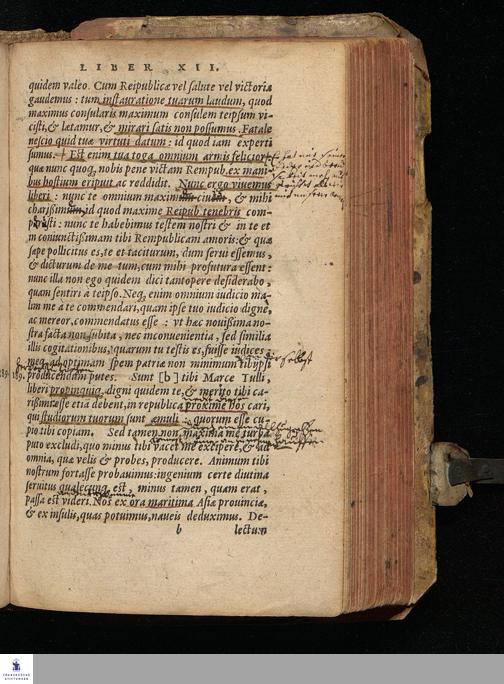 LIBER XII.
quidem valeo. Cum Reipublicæ vel salute vel victoria
gaudemus: tum instauratione tuarum laudum, quod
maximus consularis maximum consulem teipsum vi-
cisti, & lætamur, & mirari satis non possumus. Fatale
nescio quid tuæ virtuti datum: id quod iam experti
sumus. Est enim tua toga omnium armis felicior:
quæ nunc quoq; nobis pene victam Rempub. ex mani
bus hostium eripuit ac reddidit. Nunc ergo viuemus
liberi: nunc te omnium maxim ciu & mihi
charissim id quod maxime Reipub tenebris com-
nunc te habebimus testem nostri & in te et
in coniunctissimam tibi Rempublicam amoris: & quæ
sæpe pollicitus es, te et taciturum, dum serui essemus,
& dicturum de me tum, cum mihi profutura essent:
nunc illa non ego quidem dici tantopere desiderabo,
quam sentiri a teipso. Neq; enim omnium iudicio ma-
lim me a te commendari, quam ipse tuo iudicio digne,
ac mereor, commendatus esse: vt hæc nouissima no-
stra facta non subita, nec inconuenientia, sed similia
illis cogitationibus, quarum tu testis es, fuisse iudices
meq; ad optimam spem patriæ non minimum tibi ipsi
producendum putes. Sunt [b] tibi Marce Tulli,
liberi propinquiq; digni quidem te, & merito tibi ca-
rissimi: esse etia debent, in republica proxime hos cari,
qui studiorum tuorum sunt æmuli: quorum esse cu-
pio tibi copiam. Sed tamen non maxima me turba
puto excludi, quo minus tibi vacet me excipere, & ad
omnia, quæ velis & probes, producere. Animum tibi
nostrum fortasse probauimus: ingenium certe diutina
seruitus qualecunq; est, minus tamen, quam erat,
passa est videri. Nos ex ora maritima Asiæ prouinciæ,
& ex insulis, quas potuimus, naueis deduximus. De-
b lectum
FRANCKESCHE
STIFTUNGEN